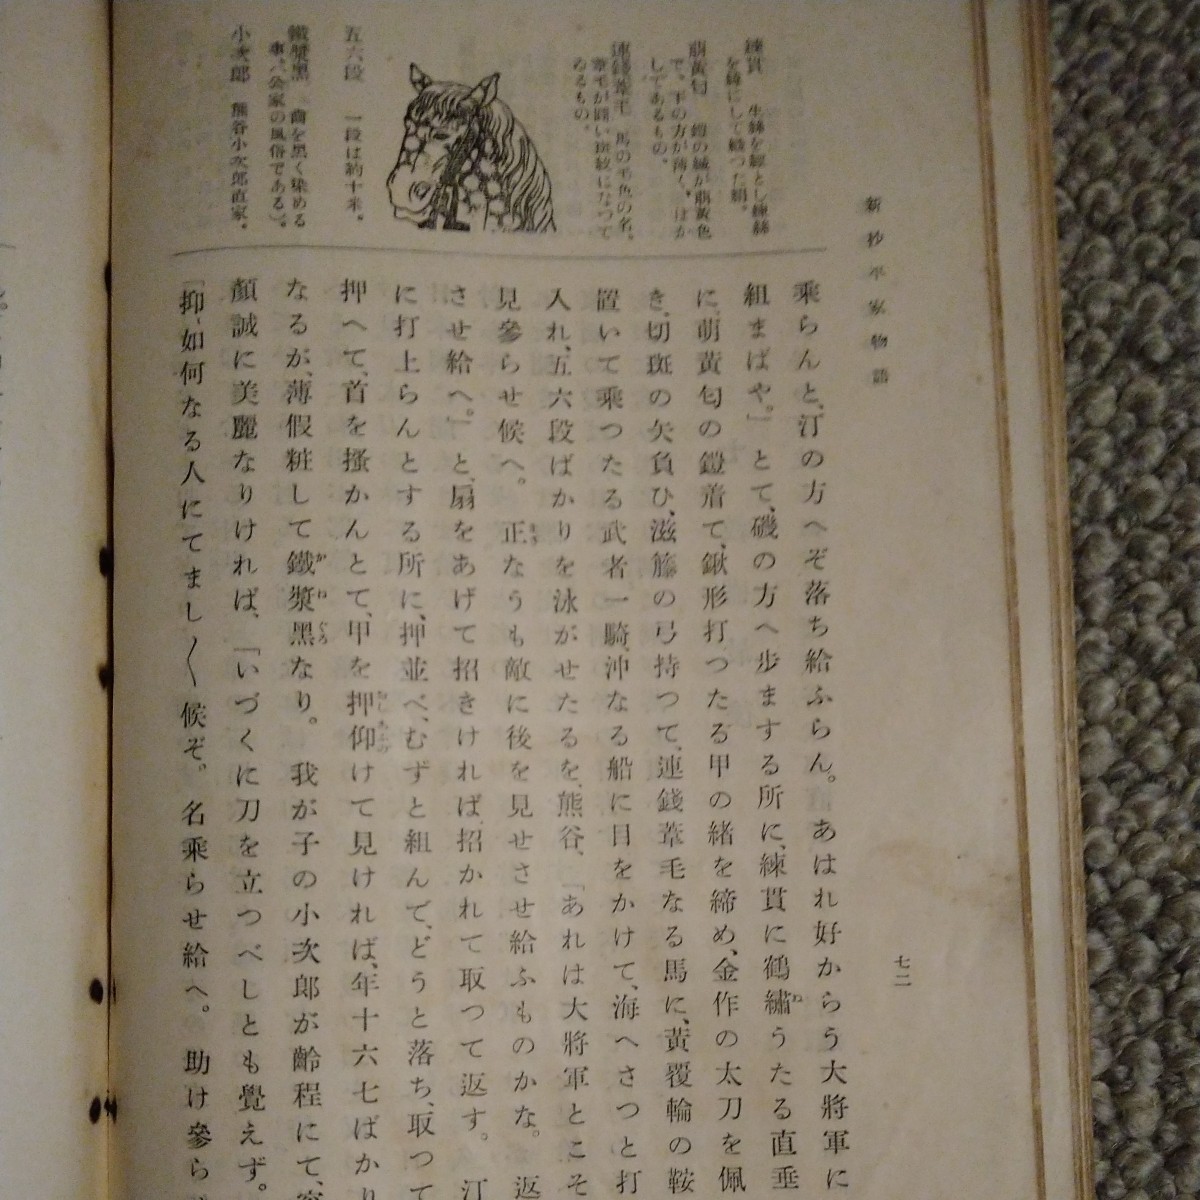 新抄平家物語
七二
練貫 生絲を經とし練絲
を緯にして織つた絹。
萌黄匂 鎧の縅が萌黄色
で、下の方が薄く、ぼか
してあるもの。
連錢葦毛 馬の毛色の名。
葦毛が圓い斑紋になつて
ゐるもの。
五六段 一段は約十米。
鐵漿黑 齒を黑く染める
事。(公家の風俗である)。
小次郎 熊谷小次郎直家。
乘らんと、汀の方へぞ落ち給ふらん。あはれ好からう大將軍に
組まばや。」とて、磯の方へ步まする所に、練貫に鶴繡うたる直垂
に、萌黄匂の鎧着て、鍬形打つたる甲の緒を締め、金作の太刀を佩
き、切斑の矢負ひ、滋籐の弓持つて、連錢葦毛なる馬に、黄覆輪の鞍
置いて乘つたる武者一騎、沖なる船に目をかけて、海へさつと打
入れ、五六段ばかりを泳がせたるを、熊谷、「あれは大將軍とこそ
見參らせ候へ。正なうも敵に後を見せさせ給ふものかな。返
させ給へ。」と、扇をあげて招きければ、招かれて取つて返す。汀
に打上らんとする所に、押並べ、むずと組んで、どうと落ち、取つて
押へて、首を搔かんとて、甲を押仰けて見ければ、年十六七ばかり
なるが、薄假粧して鐵漿黑なり。我が子の小次郎が齡程にて、
顏誠に美麗なりければ、「いづくに刀を立つべしとも覺えず。
「抑〻如何なる人にてまし〱候ぞ。名乘らせ給へ。助け參ら